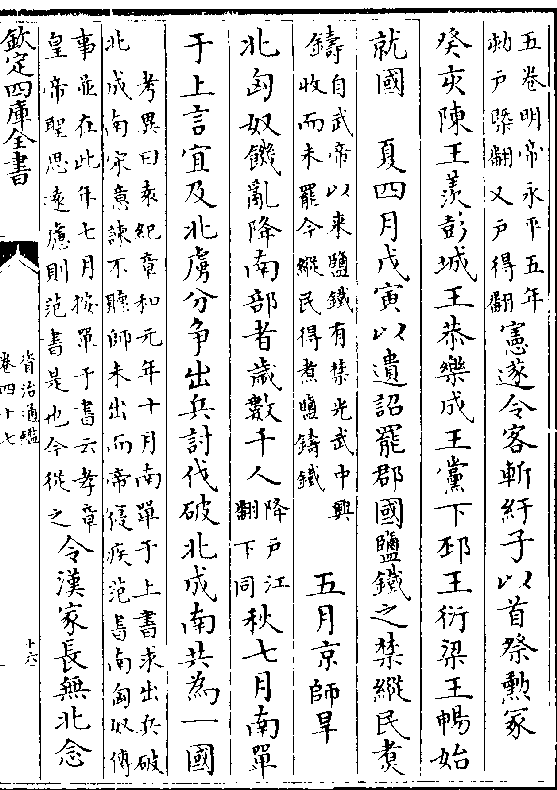 五卷明帝永平五年
劾戸槩翻又戸得翻
憲遂令客斬紆子以首祭勲冢
癸亥陳王羨彭城王恭樂成王黨下邳王衍梁王暢始
就國　夏四月戊寅以遺詔罷郡國鹽鐵之禁縱民煑
鑄
自武帝以來鹽鐵有禁光武中興
收而未罷今縱民得煮鹽鑄鐵
五月京師旱
北匈奴饑亂降南部者歲數千人
降戸江
翻下同
秋七月南單
于上言宜及北虜分争出兵討伐破北成南共為一國
考異曰袁紀章和元年十月南單于上書求出兵破
北成南宋意諫不聽師未出而帝寑疾范書南匈奴傳
事並在此年七月按單于書云孝章
皇帝聖思遠慮則范書是也今從之
令漢家長無北念
欽定四庫全書
資治通鑑
卷四十七
十六